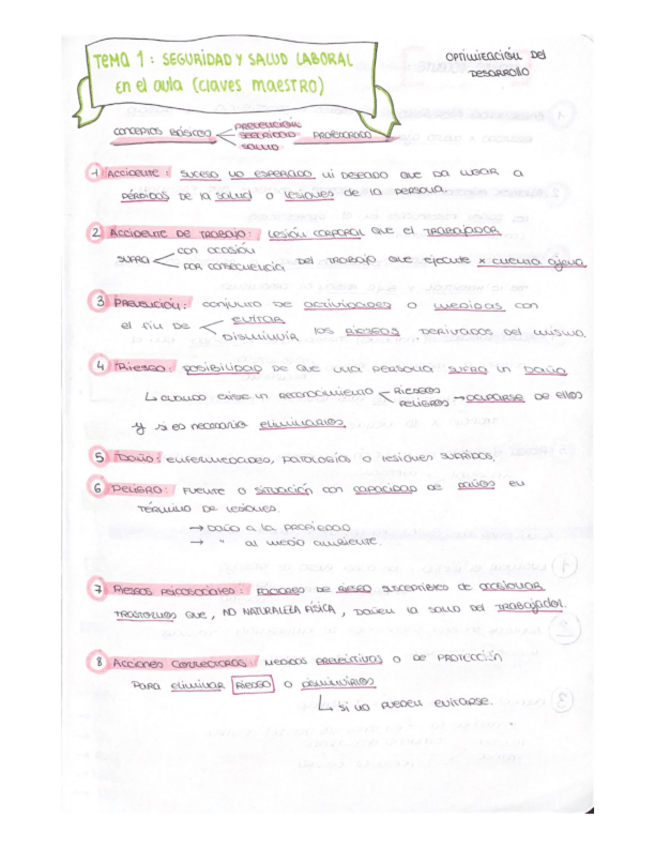 TEMA 1: SEGURIDAD Y SALUD LABORAL
En el aula (claves MAESTRO)
OPTIMIZACIÓN DEL
DESARROLLO
CONCEPTOS BÁSICOS
PREVENCIÓN
SEGURIDAD
SALUD
PROFESORADO
1 ACCIDENTE: SUCESO NO ESPERADO ni DESEADO QUE DA LUGAR a
PÉRDIDAS DE la SALUD o lesiones DE la PERSONA.
2 ACCIDENTE DE TRABAJO: LESIÓN CORPORAL QUE el TRABAJADOR
SUFRA
con OCASIÓN
POR CONSECUENCIA
DEL TRABAJO QUE EJECUTE x CUENTA AJENA
3 PREVENCIÓN: CONJUNTO DE ACTIVIDADES o MEDIDAS con
el FIN DE
EVITAR
DISMINUIR
los RIESGOS DERIVADOS DEL MISMO.
4 RIESGO: POSIBILIDAD DE QUE UNA PERSONA SUFRA UN DAÑO
↳ CUANDO EXISTE UN RECONOCIMIENTO
RIESGOS
PELIGROS
→ OCUPARSE DE ellos
Y si es necesario eliminarlos.
5 DAÑO: ENFERMEDADES, PATOLOGÍAS o lesiones SUFRIDAS.
6 PELIGRO: FUENTE o SITUACIÓN con CAPACIDAD DE DAÑOS en
TÉRMINO DE lesiones.
→ DAÑO a la PROPIEDAD
→ " al MEDIO AMBIENTE.
7 RIESGOS PSICOSOCIALES: FACTORES DE RIESGO SUSCEPTIBLES de OCASIONAR
TRASTORNOS QUE, NO NATURALEZA FÍSICA, DAÑEN la SALUD DEL TRABAJADOR.
8 ACCIONES CORRECTORAS: MEDIDAS PREVENTIVAS o DE PROTECCIÓN
PARA eliminar RIESGO o disminuirlos
↳ si no PUEDEN EVITARSE.